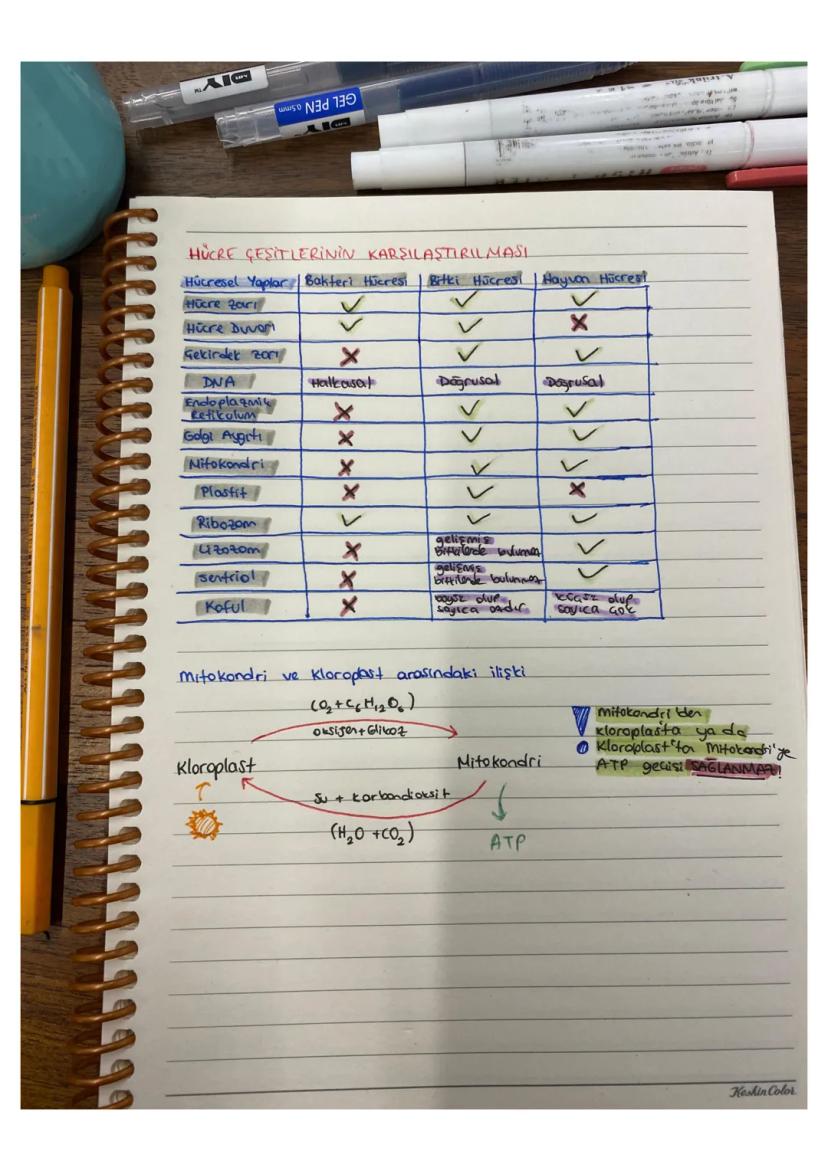 DIY™
GEL PEN 0.5mm
DIY
HÜCRE ÇEŞİTLERİNİN KARŞILAŞTIRILMASI
Hücresel Yapılar Bakteri Hücresi Bitki Hücresi Hayvan Hücresi
Hücre zarı ✓ ✓ ✓
Hücre Duvarı ✓ ✓ ✗
Çekirdek zarı ✗ ✓ ✓
DNA Halkasal Doğrusal Doğrusal
Endoplazmik
Retikulum ✗ ✓ ✓
Golgi Aygıtı ✗ ✓ ✓
Mitokondri ✗ ✓ ✓
Plastit ✗ ✓ ✗
Ribozom ✓ ✓ ✓
gelişmiş
Lizozom ✗ bitkilerde bulunmaz ✓
gelişmiş
Sentriol ✗ bitkilerde bulunmaz ✓
Koful ✗ olup olup
sayıca azdır sayıca çok
Mitokondri ve Kloroplast arasındaki ilişki
(O₂ + C₆H₁₂O₆)
oksijen + Glikoz
Kloroplast Mitokondri
Su + karbondioksit
(H₂O + CO₂)
ATP
mitokondri'den
kloroplasta ya da
Kloroplast'tan Mitokondri'ye
ATP geçişi SAĞLANMAZ!
KeskinColor